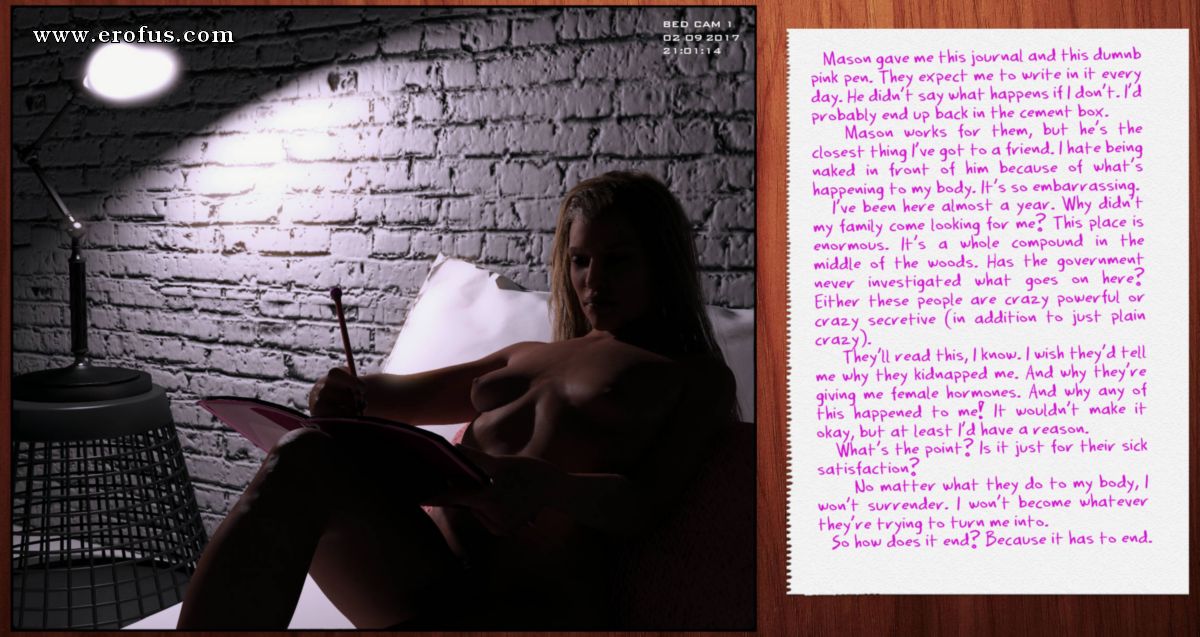 www.erofus.com
BED CAM 1
02 09 2017
21:01:14
Mason gave me this journal and this dumnb
pink pen. They expect me to write in it every
day. He didn't say what happens if I don't. I'd
probably end up back in the cement box.
Mason works for them, but he's the
closest thing I've got to a friend. I hate being
naked in front of him because of what's
happening to my body. It's so embarrassing.
I've been here almost a year. Why didn't
my family come looking for me? This place is
enormous. It's a whole compound in the
middle of the woods. Has the government
never investigated what goes on here?
Either these people are crazy powerful or
crazy secretive (in addition to just plain
crazy).
They'll read this, I know. I wish they'd tell
me why they kidnapped me. And why they're
giving me female hormones. And why any of
this happened to me! It wouldn't make it
okay, but at least I'd have a reason.
What's the point? Is it just for their sick
satisfaction?
No matter what they do to my body, I
won't surrender. I won't become whatever
they're trying to turn me into.
So how does it end? Because it has to end.